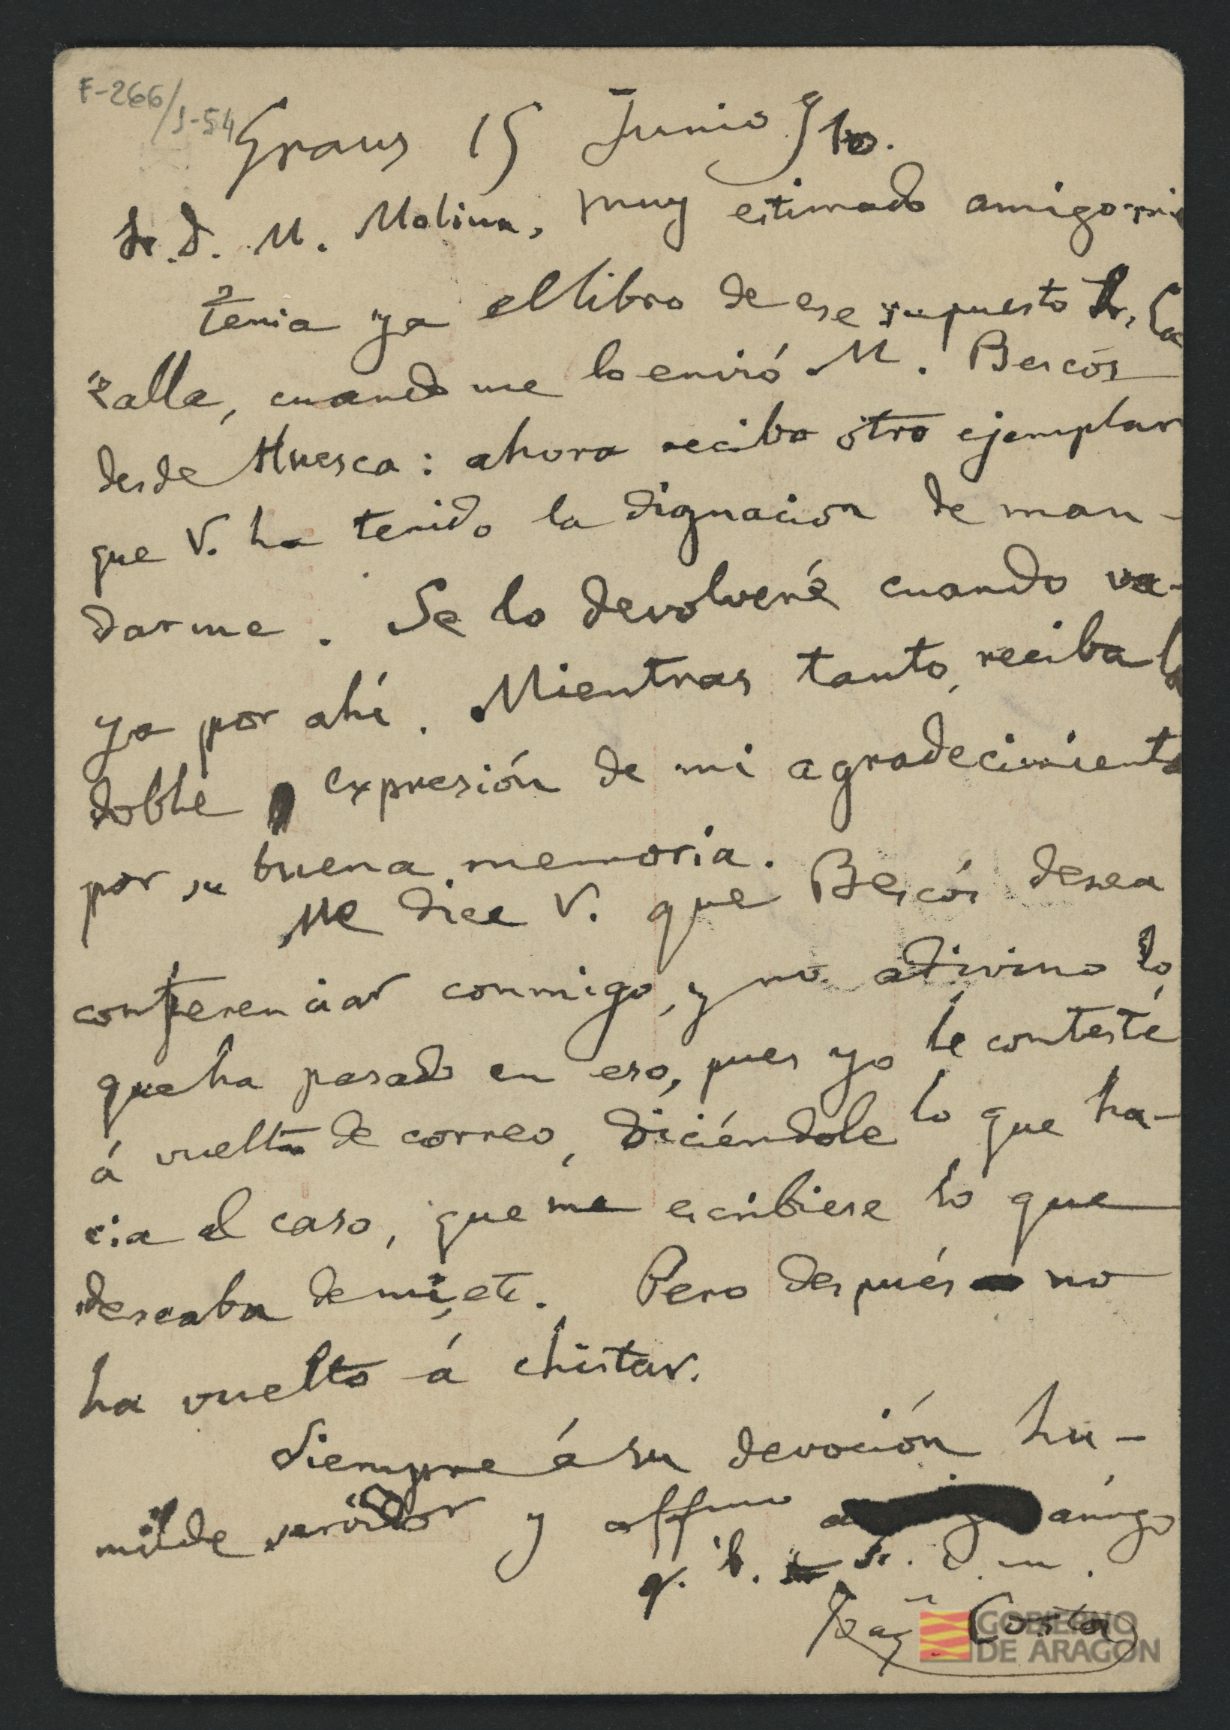 F-266/J-54
Graus 15 Junio 910.
Sr. D. M. Molina, muy estimado amigo mio
tenia ya el libro de ese supuesto Sr. La
Salle, cuando me lo envió M. Bescós
desde Huesca: ahora recibo otro ejemplar
que V. ha tenido la dignacion de man-
darme. Se lo devolveré cuando va-
ya por ahí. Mientras tanto, reciba la
doble expresión de mi agradecimiento
por su buena memoria.
Me dice V. que Bescós desea
conferenciar conmigo, y no adivino lo
que ha pasado en eso, pues yo le contesté
á vuelta de correo, diciéndole lo que ha-
cia el caso, que me escribiese lo que
deseaba de mi, etc. Pero después no
ha vuelto á chistar.
Siempre á su devoción hu-
milde servidor y affmo amigo
q. b. s. m.
Joaqn Costa
GOBIERNO
DE ARAGON